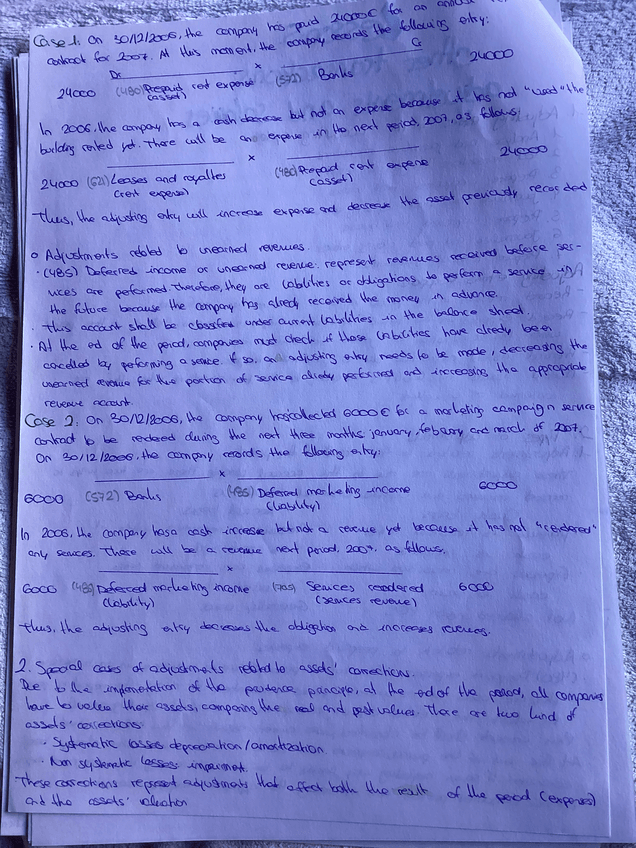 Case 1. On 30/12/2006, the company has paid 24000€ for an annual
contract for 2007. At this moment, the company records the following entry:
Dr x Cr
24000 (480) Prepaid rent expense (572) Banks 24000
(asset)
In 2006, the company has a cash decrease but not an expense because it has not "used" the
building rented yet. There will be an expense in the next period, 2007, as follows:
x
24000 (621) Leases and royalties (480) Prepaid rent expense 24000
(rent expense) (asset)
Thus, the adjusting entry will increase expense and decrease the asset previously recorded
o Adjustments related to unearned revenues.
· (485) Deferred income or unearned revenue: represent revenues received before ser-
vices are performed. Therefore, they are liabilities or obligations to perform a service in
the future because the company has already received the money in advance.
· This account shall be classified under current liabilities in the balance sheet.
· At the end of the period, companies must check if those liabilities have already been
cancelled by performing a service. If so, an adjusting entry needs to be made, decreasing the
unearned revenue for the portion of service already performed and increasing the appropriate
revenue account.
Case 2. On 30/12/2006, the company has collected 6000€ for a marketing campaign service
contract to be rendered during the next three months january, february and march of 2007.
On 30/12/2006, the company records the following entry:
x
6000 (572) Banks (485) Deferred marketing income 6000
(liability)
In 2006, the company has a cash increase but not a revenue yet because it has not "rendered"
any services. There will be a revenue next period, 2007, as follows,
x
6000 (485) Deferred marketing income (705) Services rendered 6000
(liability) (services revenue)
Thus, the adjusting entry decreases the obligation and increases revenues.
2. Special cases of adjustments related to assets' correction.
Due to the implementation of the prudence principle, at the end of the period, all companies
have to value their assets, comparing the real and past values. There are two kind of
assets' corrections:
· Systematic losses: depreciation/amortization
· Non systematic losses: impairment.
These corrections represent adjustments that affect both the result of the period (expenses)
and the assets' valuation